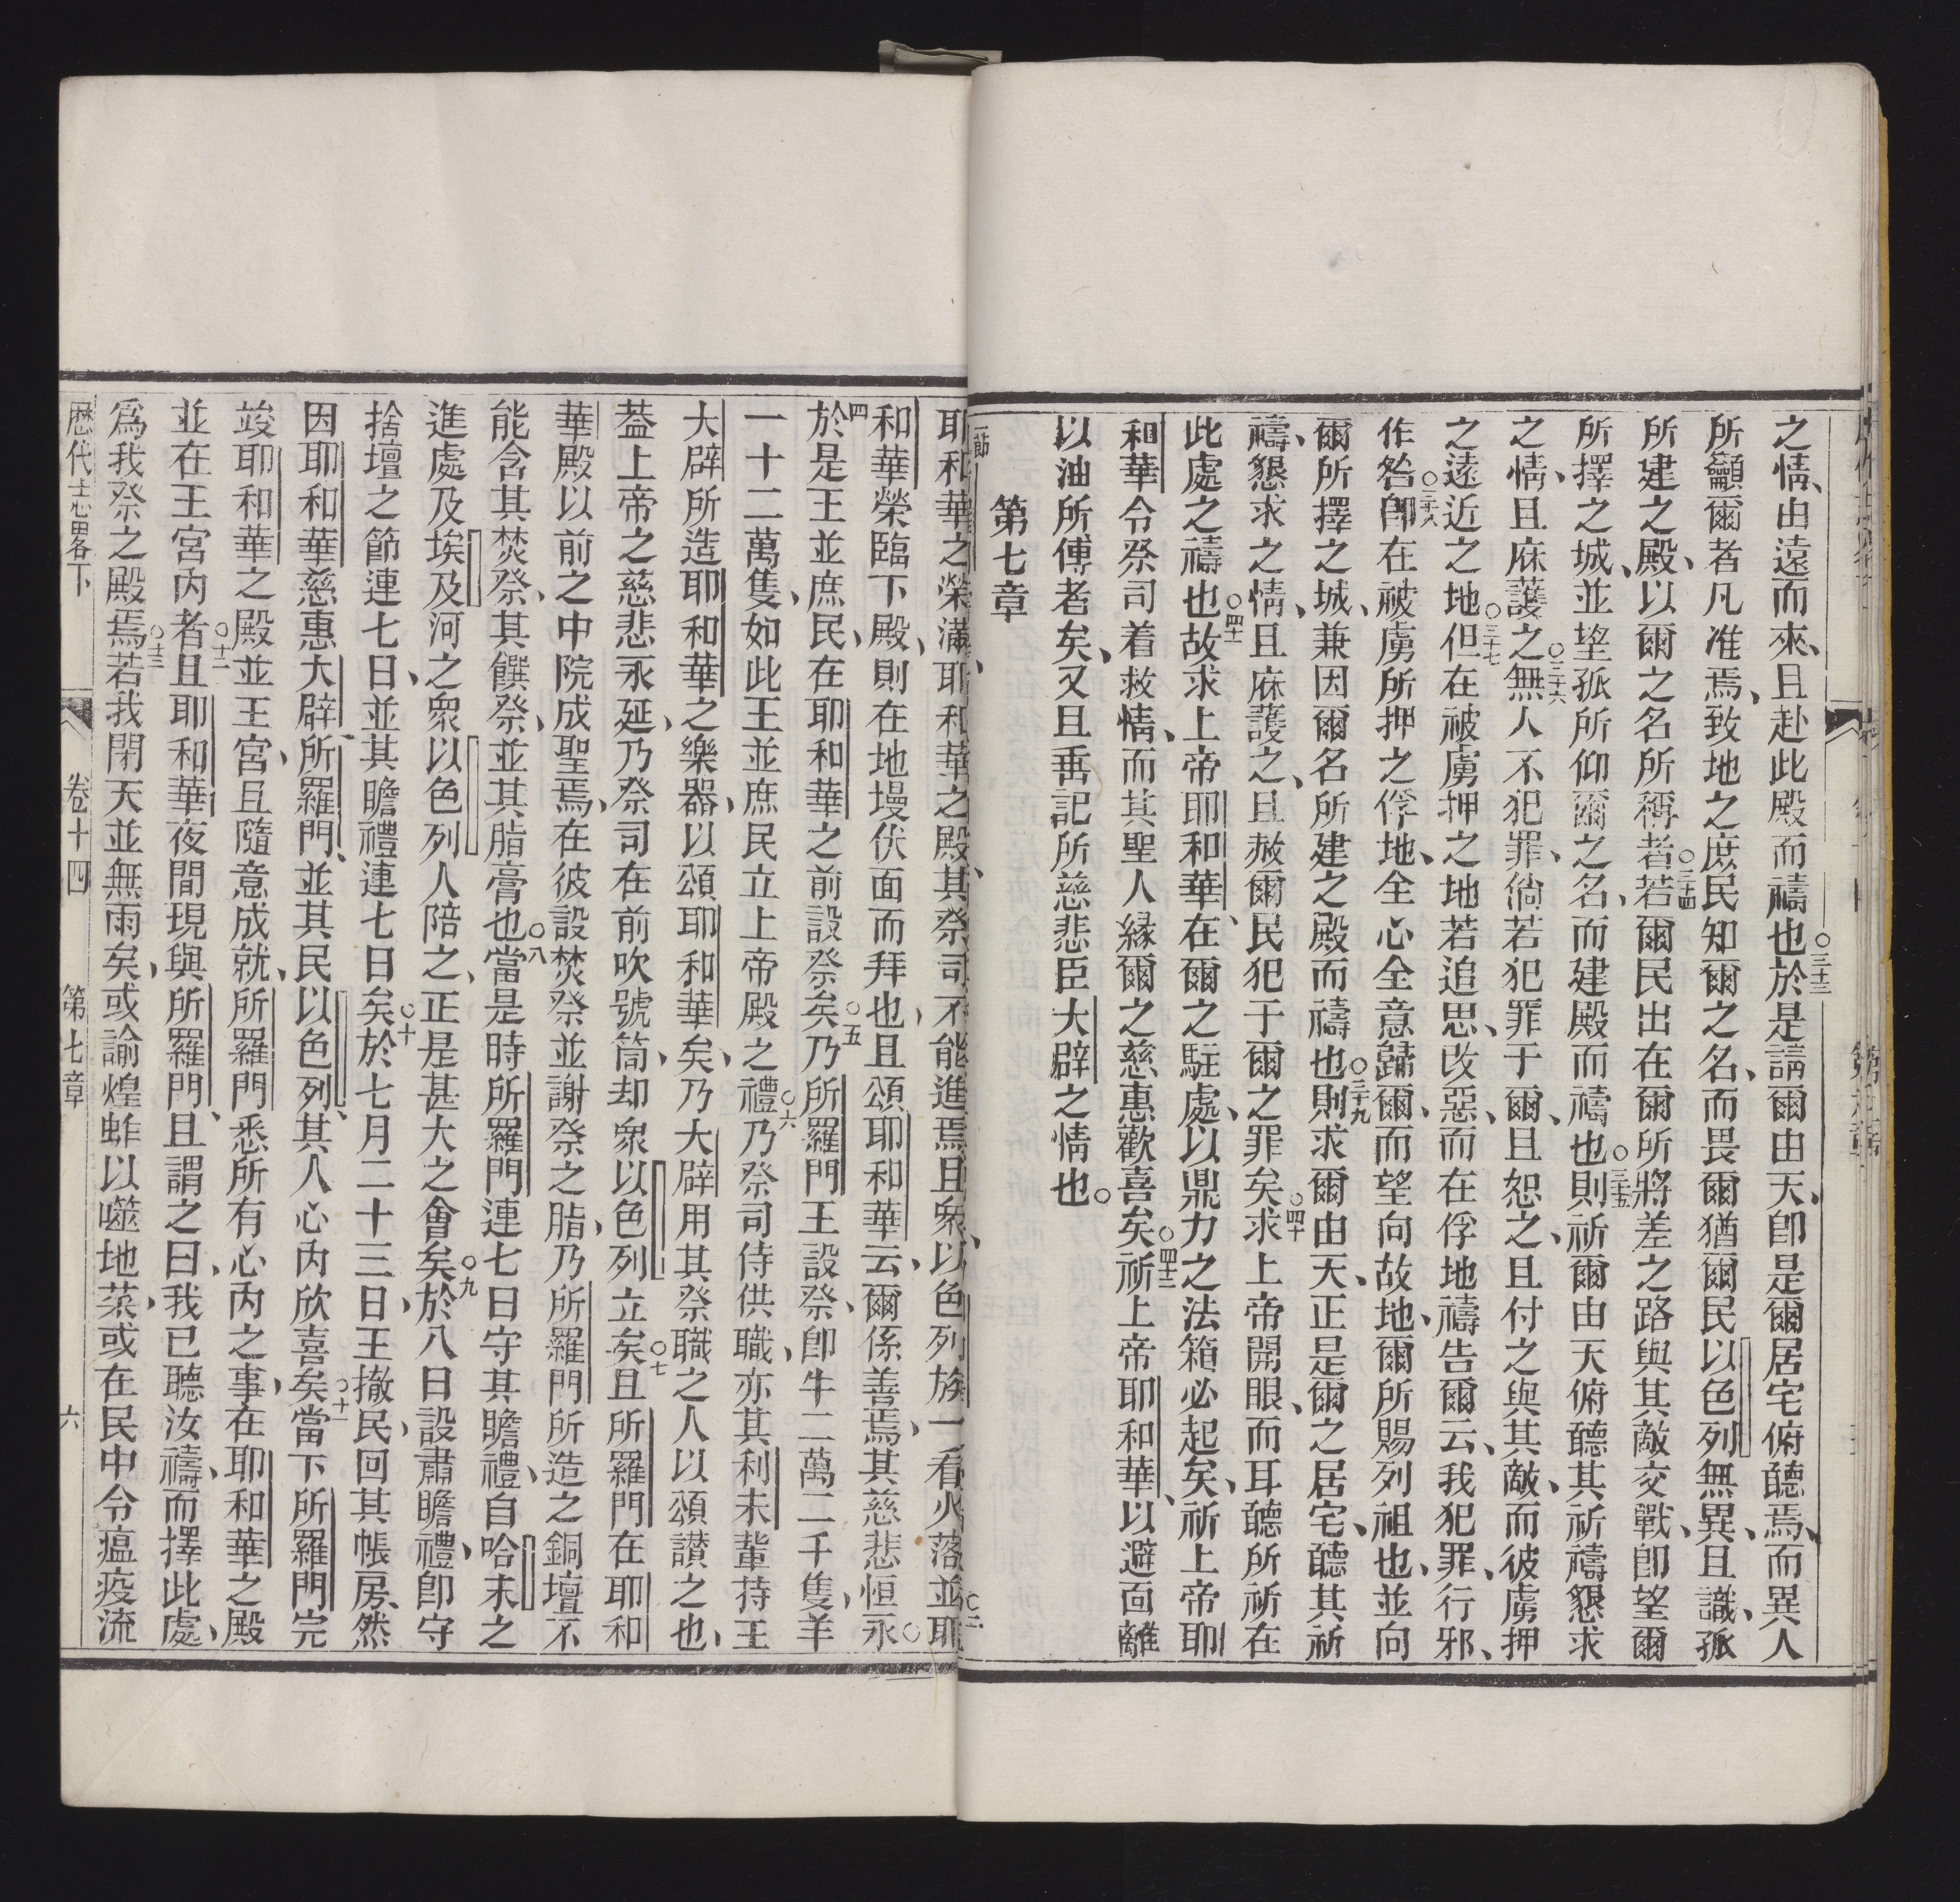 之情、由遠而來、且赴此殿而禱也○三十三於是請爾由天、卽是爾居宅俯聽焉、而異人
所籲爾者凡准焉、致地之庶民知爾之名、而畏爾猶爾民以色列無異、且識、孤
所建之殿、以爾之名所稱者○三十四若爾民出在爾所將差之路與其敵交戰、卽望爾
所擇之城、並望孤所仰爾之名、而建殿而禱也○三十五則祈爾由天俯聽其祈禱懇求
之情、且庥護之○三十六無人不犯罪、倘若犯罪于爾、且恕之、且付之與其敵、而彼虜押
之遠近之地○三十七但在被虜押之地若追思、改惡、而在俘地禱告爾云、我犯罪、行邪、
作咎○三十八卽在被虜所押之俘地、全心全意歸爾、而望向故地、爾所賜列祖也、並向
爾所擇之城、兼因爾名所建之殿而禱也○三十九則求爾由天、正是爾之居宅、聽其祈
禱、懇求之情、且庥護之、且赦爾民犯于爾之罪矣○四十求上帝開眼、而耳聽所祈在
此處之禱也○四十一故求上帝耶和華、在爾之駐處、以鼎力之法箱必起矣、祈上帝耶
和華令祭司着救情、而其聖人緣爾之慈惠歡喜矣○四十二祈上帝耶和華、以避面離
以油所傅者矣、又且垂記所慈悲臣大辟之情也。
第七章
一節耶和華之榮滿耶和華之殿、其祭司不能進焉、且衆以色列族一看火落○二並耶
和華榮臨下殿、則在地墁伏面而拜也、且頌耶和華云、爾係善焉、其慈悲恒永○
四於是王並庶民、在耶和華之前設祭矣○五乃所羅門王設祭、卽牛二萬二千隻、羊
一十二萬隻、如此王並庶民立上帝殿之禮○六乃祭司侍供職、亦其利未輩持王
大辟所造耶和華之樂器、以頌耶和華矣、乃大辟用其祭職之人以頌讃之也、
葢上帝之慈悲永延、乃祭司在前吹號筒、却衆以色列立矣○七且所羅門在耶和
華殿以前之中院成聖焉、在彼設焚祭並謝祭之脂、乃所羅門所造之銅壇不
能含其焚祭、其饌祭、並其脂膏也○八當是時所羅門連七日守其瞻禮、自哈末之
進處及埃及河之衆以色列人陪之、正是甚大之會矣○九於八日設肅瞻禮、卽守
捨壇之節連七日、並其瞻禮連七日矣○十於七月二十三日、王撤民、回其帳房、然
因耶和華慈惠大辟、所羅門、並其民以色列、其人心內欣喜矣○十一當下所羅門完
竣耶和華之殿並王宮、且隨意成就、所羅門悉所有心內之事、在耶和華之殿
並在王宮內者○十二且耶和華夜間現與所羅門、且謂之曰、我已聽汝禱、而擇此處、
爲我祭之殿焉○十三若我閉天並無雨矣、或諭煌蚱以噬地菜、或在民中令瘟疫流
歷代志畧下 卷十四 第七章 六